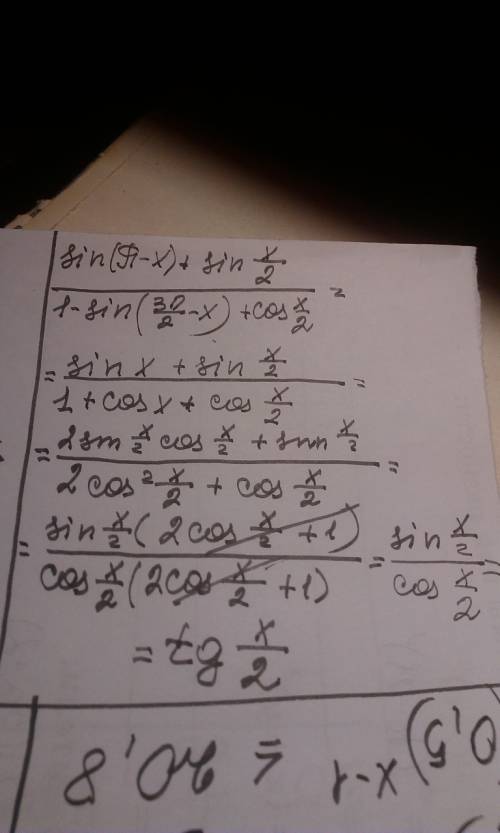 sin(π-x)+ sin x/2 / 1-sin(3π/2 -x) +cos x/2 =
= sin x + sin x/2 / 1 + cos x + cos x/2 =
= 2sin x/2 cos x/2 + sin x/2 / 2 cos² x/2 + cos x/2 =
= sin x/2 ( 2cos x/2 + 1) / cos x/2 (2cos x/2 + 1) = sin x/2 / cos x/2 =
= tg x/2
0,5) x-1